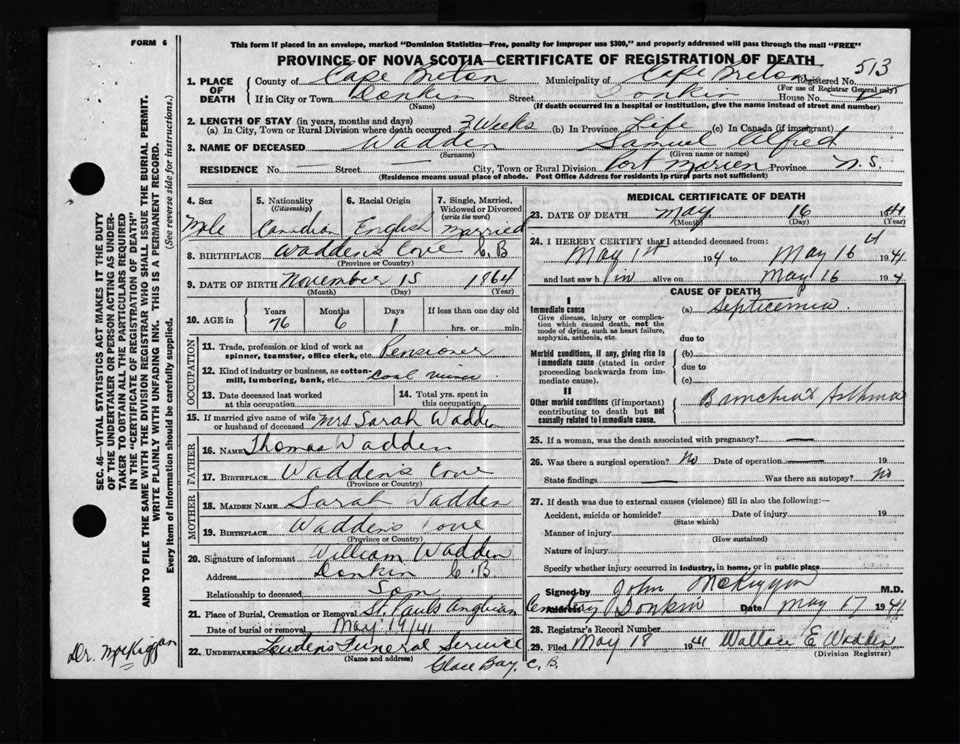 FORM 6
This form if placed in an envelope, marked "Dominion Statistics—Free, penalty for improper use $300," and properly addressed will pass through the mail "FREE"
PROVINCE OF NOVA SCOTIA—CERTIFICATE OF REGISTRATION OF DEATH
513
1. PLACE OF DEATH County of Cape Breton Municipality of Cape Breton Registered No.
(For use of Registrar General only)
If in City or Town Donkin Street Donkin House No.
(Name) (If death occurred in a hospital or institution, give the name instead of street and number)
2. LENGTH OF STAY (in years, months and days)
(a) In City, Town or Rural Division where death occurred 3 Weeks (b) In Province Life (c) In Canada (if immigrant)
3. NAME OF DECEASED Wadden Samuel Alfred
(Surname) (Given name or names)
RESIDENCE No. Street City, Town or Rural Division Port Morien Province N.S.
(Residence means usual place of abode. Post Office Address for residents in rural parts not sufficient)
4. Sex 5. Nationality (Citizenship) 6. Racial Origin 7. Single, Married, Widowed or Divorced (write the word)
Male Canadian English Married
8. BIRTHPLACE Wadden's Cove C.B
(Province or Country)
9. DATE OF BIRTH November 15 1864
(Month) (Day) (Year)
10. AGE in Years Months Days If less than one day old
76 6 1 hrs. or min.
OCCUPATION
11. Trade, profession or kind of work as spinner, teamster, office clerk, etc. Pensioner
12. Kind of industry or business, as cotton-mill, lumbering, bank, etc. Coal mines
13. Date deceased last worked at this occupation 14. Total yrs. spent in this occupation
15. If married give name of wife or husband of deceased Mrs Sarah Wadden
FATHER
16. NAME Thomas Wadden
17. BIRTHPLACE Wadden's Cove
(Province or Country)
MOTHER
18. MAIDEN NAME Sarah Wadden
19. BIRTHPLACE Waddens Cove
(Province or Country)
20. Signature of informant William Wadden
Address Donkin C.B
Relationship to deceased Son
21. Place of Burial, Cremation or Removal St. Pauls Anglican
Date of burial or removal May 19/41
22. UNDERTAKER Funeral Service
(Name and address) Glace Bay, C.B.
MEDICAL CERTIFICATE OF DEATH
23. DATE OF DEATH May 16 1941
(Month) (Day) (Year)
24. I HEREBY CERTIFY that I attended deceased from:
May 1st 194 to May 16 194
and last saw h im alive on May 16 194
CAUSE OF DEATH
I
Immediate cause (a) Septicemia
Give disease, injury or complication which caused death, not the mode of dying, such as heart failure, asphyxia, asthenia, etc.
due to
Morbid conditions, if any, giving rise to immediate cause (stated in order proceeding backwards from immediate cause).
(b)
due to
(c)
II
Other morbid conditions (if important) contributing to death but not causally related to immediate cause.
Bronchial Asthma
25. If a woman, was the death associated with pregnancy?
26. Was there a surgical operation? No Date of operation 19
State findings Was there an autopsy? No
27. If death was due to external causes (violence) fill in also the following:—
Accident, suicide or homicide? Date of injury 19
(State which)
Manner of injury
(How sustained)
Nature of injury
Specify whether injury occurred in industry, in home, or in public place
Signed by John McKiggan M.D.
Donkin Date May 17 1941
28. Registrar's Record Number
29. Filed May 18 1941 Wallace E Wadden
(Division Registrar)
SEC. 46—VITAL STATISTICS ACT MAKES IT THE DUTY
OF THE UNDERTAKER OR PERSON ACTING AS UNDERTAKER TO OBTAIN ALL THE PARTICULARS REQUIRED
IN THE "CERTIFICATE OF REGISTRATION OF DEATH"
AND TO FILE THE SAME WITH THE DIVISION REGISTRAR WHO SHALL ISSUE THE BURIAL PERMIT.
WRITE PLAINLY WITH UNFADING INK. THIS IS A PERMANENT RECORD.
Every item of Information should be carefully supplied. (See reverse side for instructions.)
Dr. McKiggan